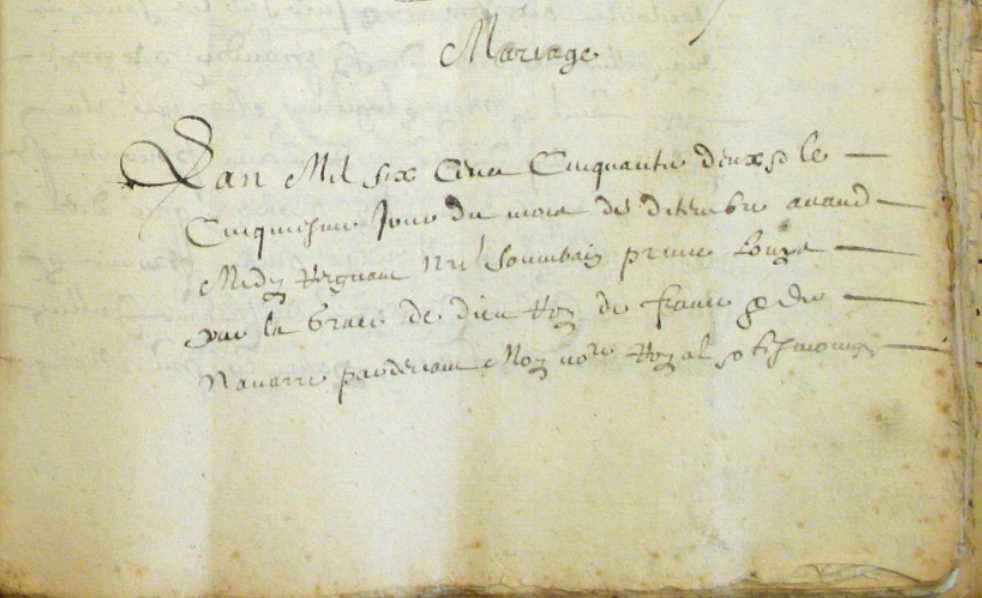 Mariage
Lan Mil six Cens Cinquante deux & le
Cinquiesme Jour du mois de decembre avand
Midy Regnant tres souverain prince Louys
par la Grace de dieu Roy de france & de
Navarre pardevant Moy nore Royal & tesmoings